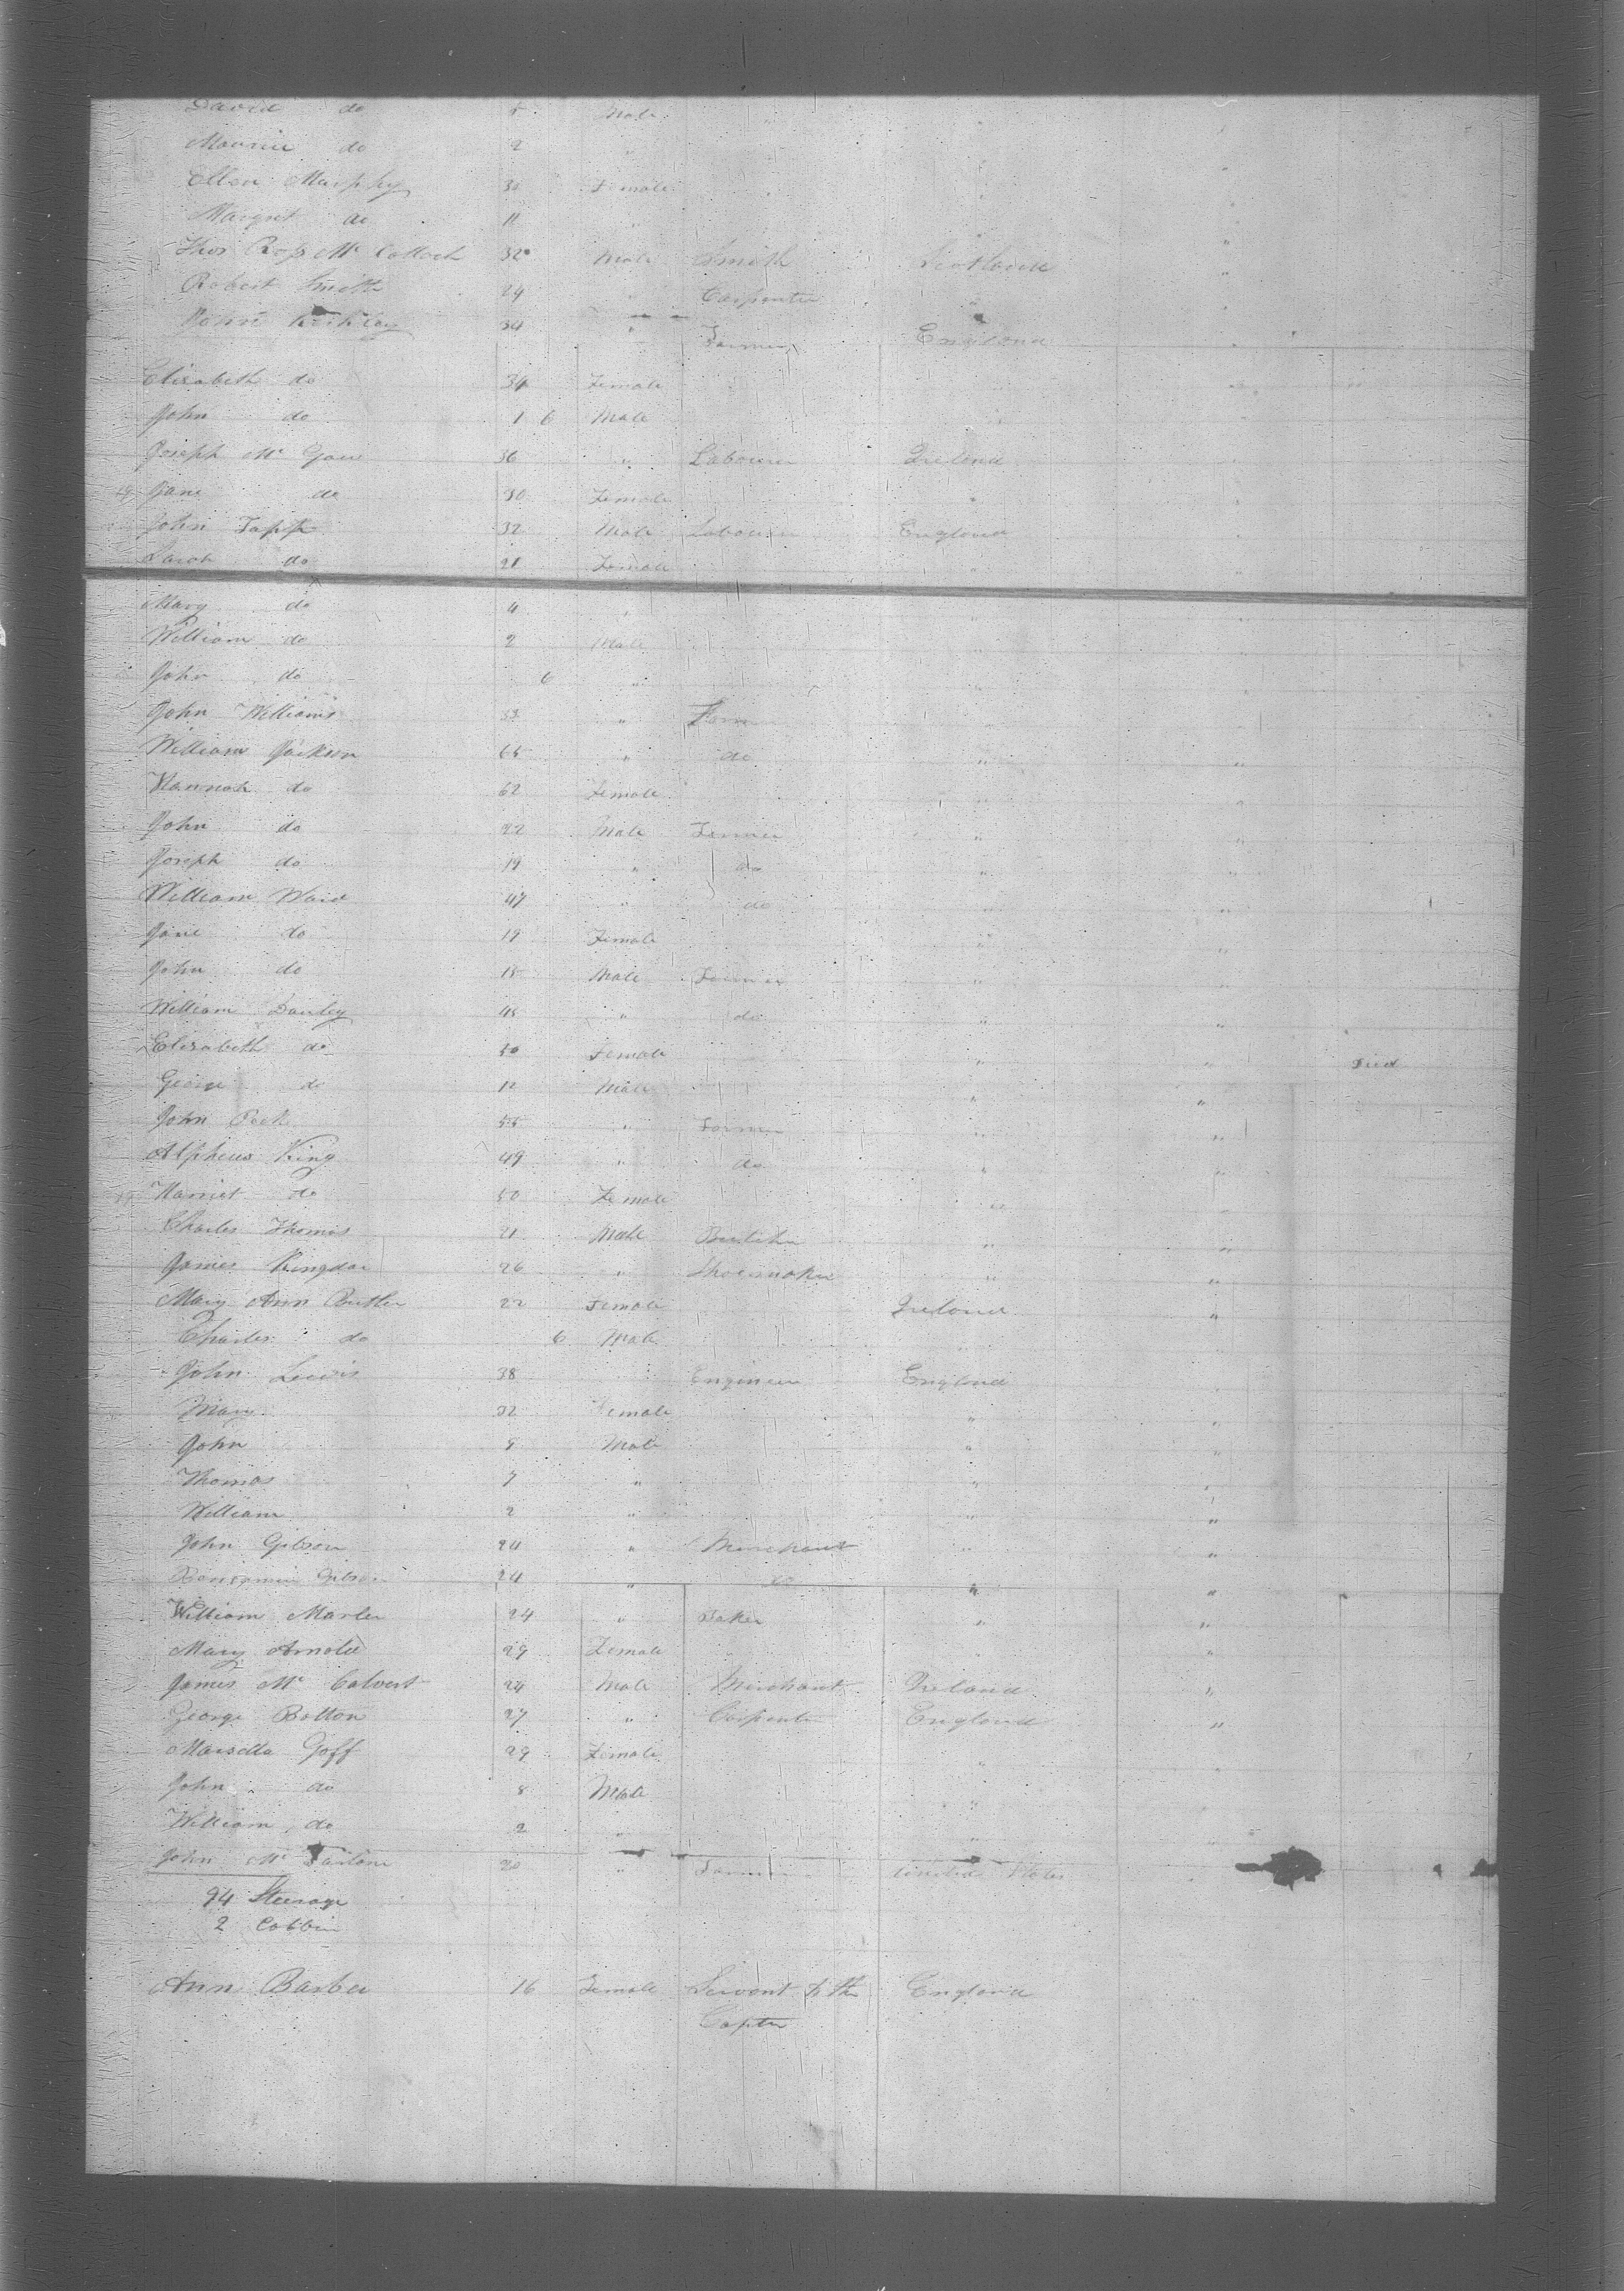 David do 5 Male "
Maurice do 2 "
Ellen Murphy 30 Female "
Margret do 11 "
Thos Ross Mc Colloch 32 Male Smith Scotland "
Robert Smith 24 " Carpenter " "
John Kirkley 34 " Farmer England "
Elizabeth do 34 Female " "
John do 1 6 Male " "
Joseph Mc Gaw 36 " Labourer Ireland "
Jane do 30 Female " "
John Tapp 32 Male Labourer England "
Sarah do 21 Female " "
Mary do 4 " " "
William do 2 Male " "
John do 6 " " "
John Williams 53 " Farmer " "
William Jackson 65 " do " "
Hannah do 62 Female " "
John do 22 Male Farmer " "
Joseph do 19 " do " "
William Ward 47 " do " "
Jane do 19 Female " "
John do 15 Male Farmer " "
William Danley 45 " do " "
Elizabeth do 50 Female " " Died
George do 12 Male " "
John Peck 55 " Farmer " "
Alpheus King 49 " do " "
Harriet do 50 Female " "
Charles Thomas 21 Male " "
James Kingdon 26 " Shoemaker " "
Mary Ann Butler 22 Female Ireland "
Charles do 6 Male " "
John Lewis 38 Engineer England "
Mary 32 Female " "
John 9 Male " "
Thomas 7 " " "
William 2 " " "
John Gibson 24 " Merchant " "
Benjamin Gibson 24 " do " "
William Marler 24 " Baker " "
Mary Arnold 29 Female " "
James Mc Calvert 24 Male Merchant Ireland "
George Bolton 27 " Carpenter England "
Marsella Goff 29 Female " "
John do 8 Male " "
William do 2 " " "
John Mc Farlane 20 " Farmer United States "
94 Steerage
2 Cabbin
Ann Barber 16 Female Servant to the England
Capten